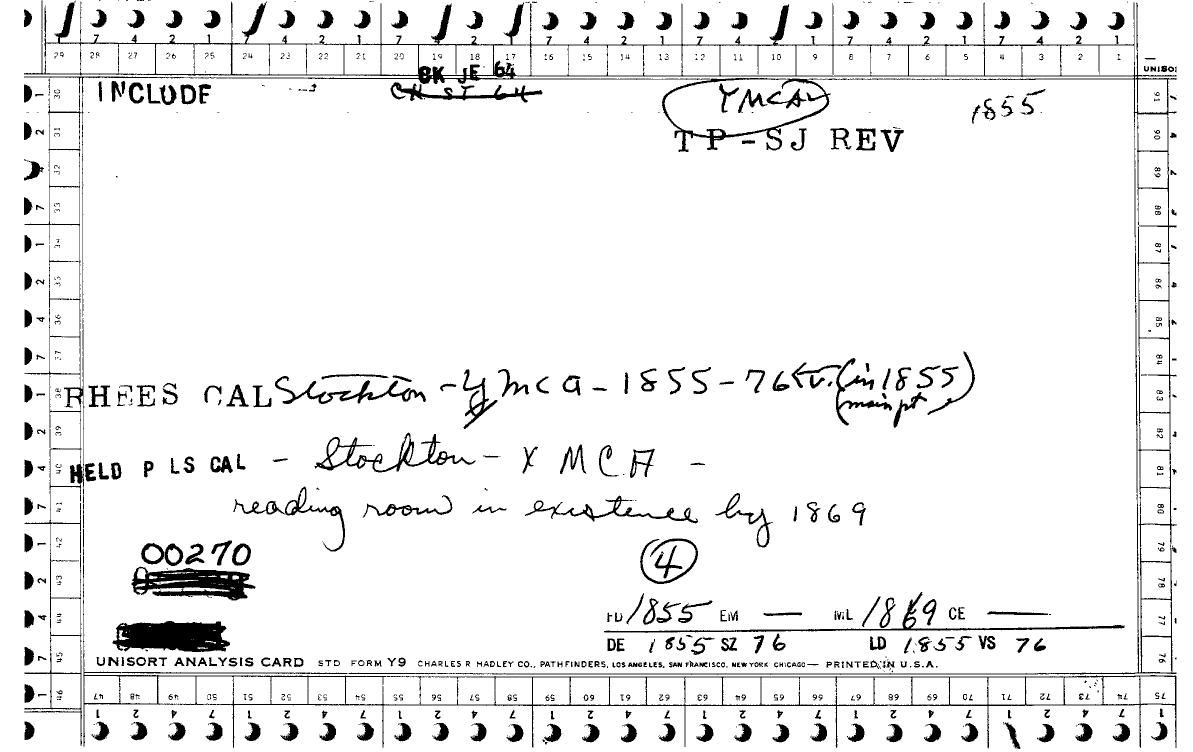 7 4 2 1 7 4 2 1 7 4 2 1 7 4 2 1 7 4 2 1 7 4 2 1 7 4 2 1
29 28 27 26 25 24 23 22 21 20 19 18 17 16 15 14 13 12 11 10 9 8 7 6 5 4 3 2 1
UNISO
CK JE 64
INCLUDE CK ST 64 YMCA 1855
TP-SJ REV
RHEES CAL Stockton - YMCA - 1855 - 76 v. (in 1855)
main pt
HELD P LS CAL - Stockton - YMCA -
reading room in existence by 1869
00270
4
FD 1855 EM — ML 1869 CE —
DE 1855 SZ 76 LD 1855 VS 76
UNISORT ANALYSIS CARD STD FORM Y9 CHARLES R HADLEY CO., PATHFINDERS, LOS ANGELES, SAN FRANCISCO, NEW YORK CHICAGO — PRINTED IN U.S.A.
47 48 49 50 51 52 53 54 55 56 57 58 59 60 61 62 63 64 65 66 67 68 69 70 71 72 73 74 75
1 2 4 7 1 2 4 7 1 2 4 7 1 2 4 7 1 2 4 7 1 2 4 7 1 2 4 7 1